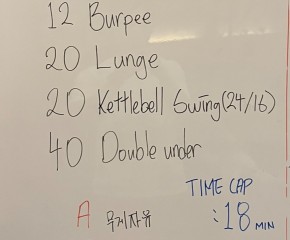 12 Burpee
20 Lunge
20 Kettlebell Swing (24/16)
40 Double under
TIME CAP
A 무게자유 :18 MIN